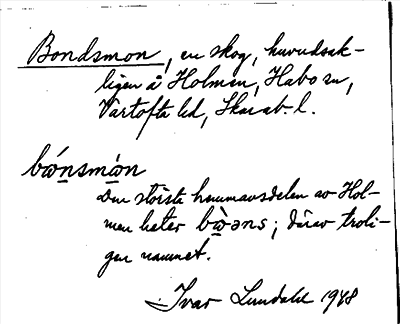 Bondsmon, en skog, huvudsak-
ligen å Holmen, Habo sn,
Vartofta hd, Skarab. l.
bώnsmὼn
Den största hemmansdelen av Hol-
men heter bὼəns; därav troli-
gen namnet.
Ivar Lundahl 1948